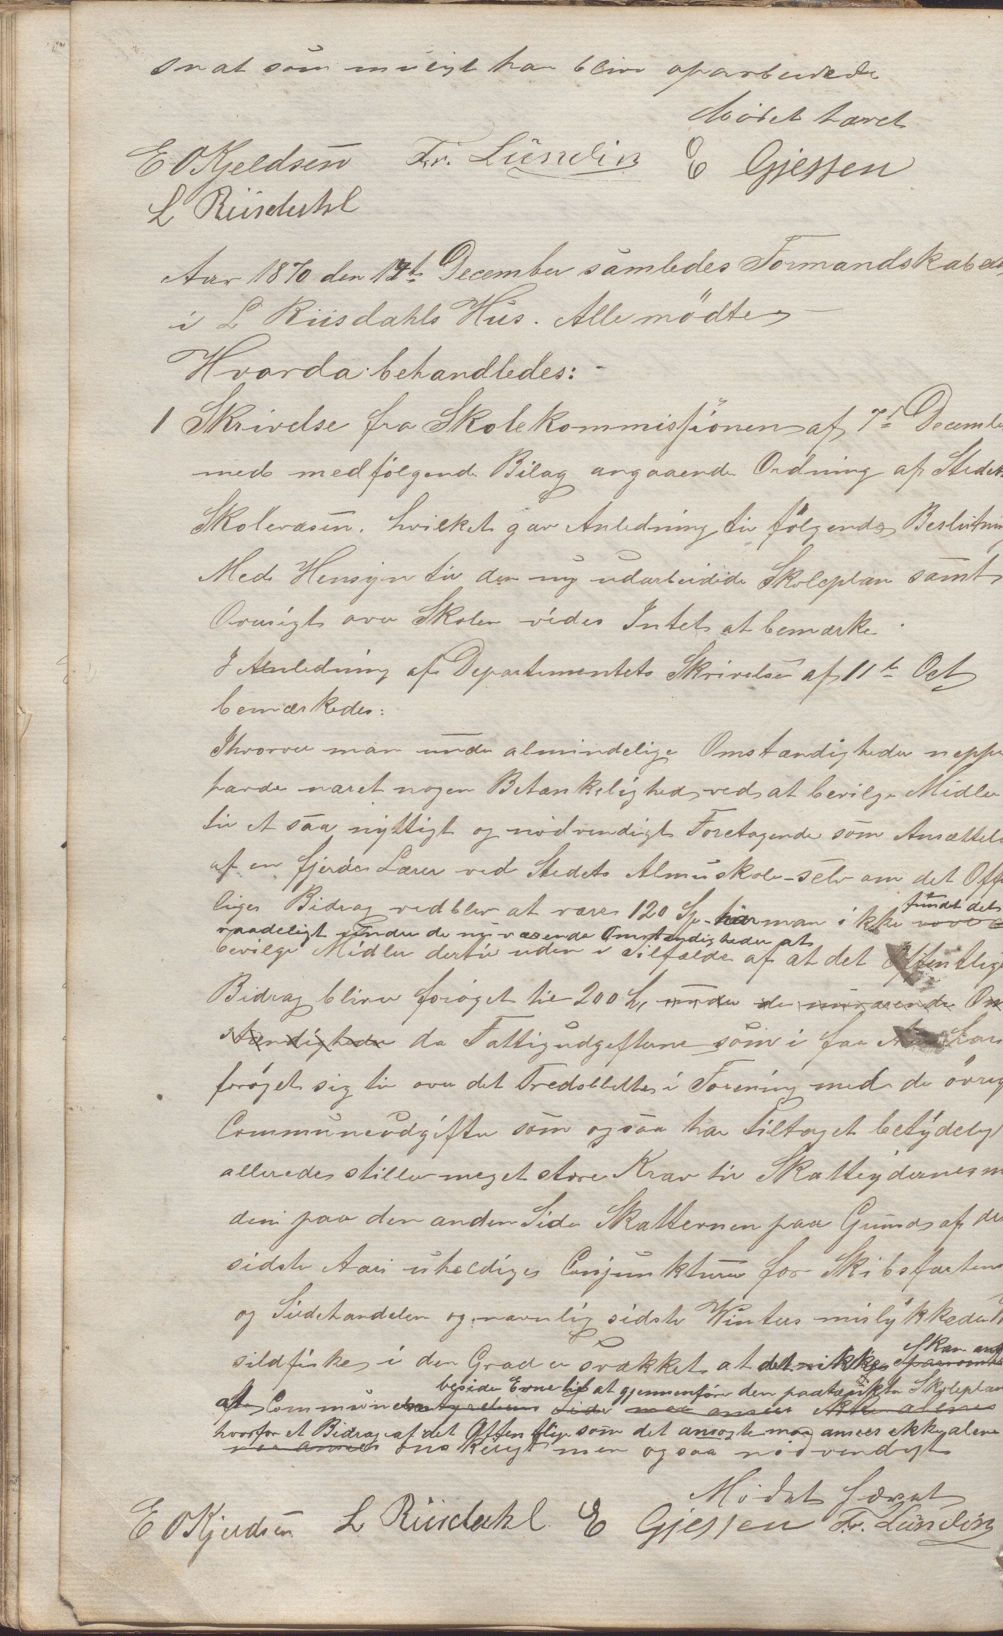 snat som muligt kan blive oparbeidede
Mødet hævet
E O Kjeldsen Fr. Lundin E Gjessen
L Riisdahl
Aar 1870 den 17th December samledes Formandskabet
i L Riisdahls Hus. Alle mødte
Hvorda behandledes:
1 Skrivelse fra Skolekommissionen af 7d Decemb
med medfølgende Bilag angaaende Ordning af Stedets
Skolevæsen. hvilket gav Anledning til følgende Beslutnin
Med Hensyn til den ny udarbeidede Skoleplan samt
Oversigt over Skolen vides Intet at bemærke.
I Anledning af Departementets Skrivelse af 11te Oct
bemærkedes:
Ihvorvel man under almindelige Omstændigheder neppe
havde næret nogen Betænkelighed ved at bevilge Midler
til et saa nyttigt og nødvendigt Foretagende som Ansættels
af en fjerde Lærer ved Stedets Almuskole selv om det Offe
liges Bidrag vedblev at være 120 Sp. har man ikke fundet det
raadeligt under de nuværende Omstændigheder at
bevilge Midler dertil uden i Tilfælde af at det Offentlige
Bidrag bliver forøget til 200 Sp, under de nuværende Om
stændigheder da Fattigudgifterne som i faa Aar har
forøget sig til over det Tredobbelte i Forening med de øvrig
Communeudgifter som ogsaa har tiltaget betydelig
allerede stiller meget store Krav til Skatteydernes
den paa den anden Side Skatteevnen paa Grund af de
sidste Aars uheldige Conjunkturer for Skibsfarten
og Sildehandelen og navnlig sidste Vinters mislykkede
sildfiske i den Grad er svækket at det ikke skan
beside Evne til at gjennemføre den paatænkte Skoleplan
af Communebestyrelsens Side maa ansees ikke alene
hvorfor et Bidrag af det Offentlige som det ansøgte maa ansees ikke alene
maa ansees ønskeligt men ogsaa nødvendigt
Mødet hævet
E O Kjeldsen L Riisdahl E Gjessen Fr. Lundin